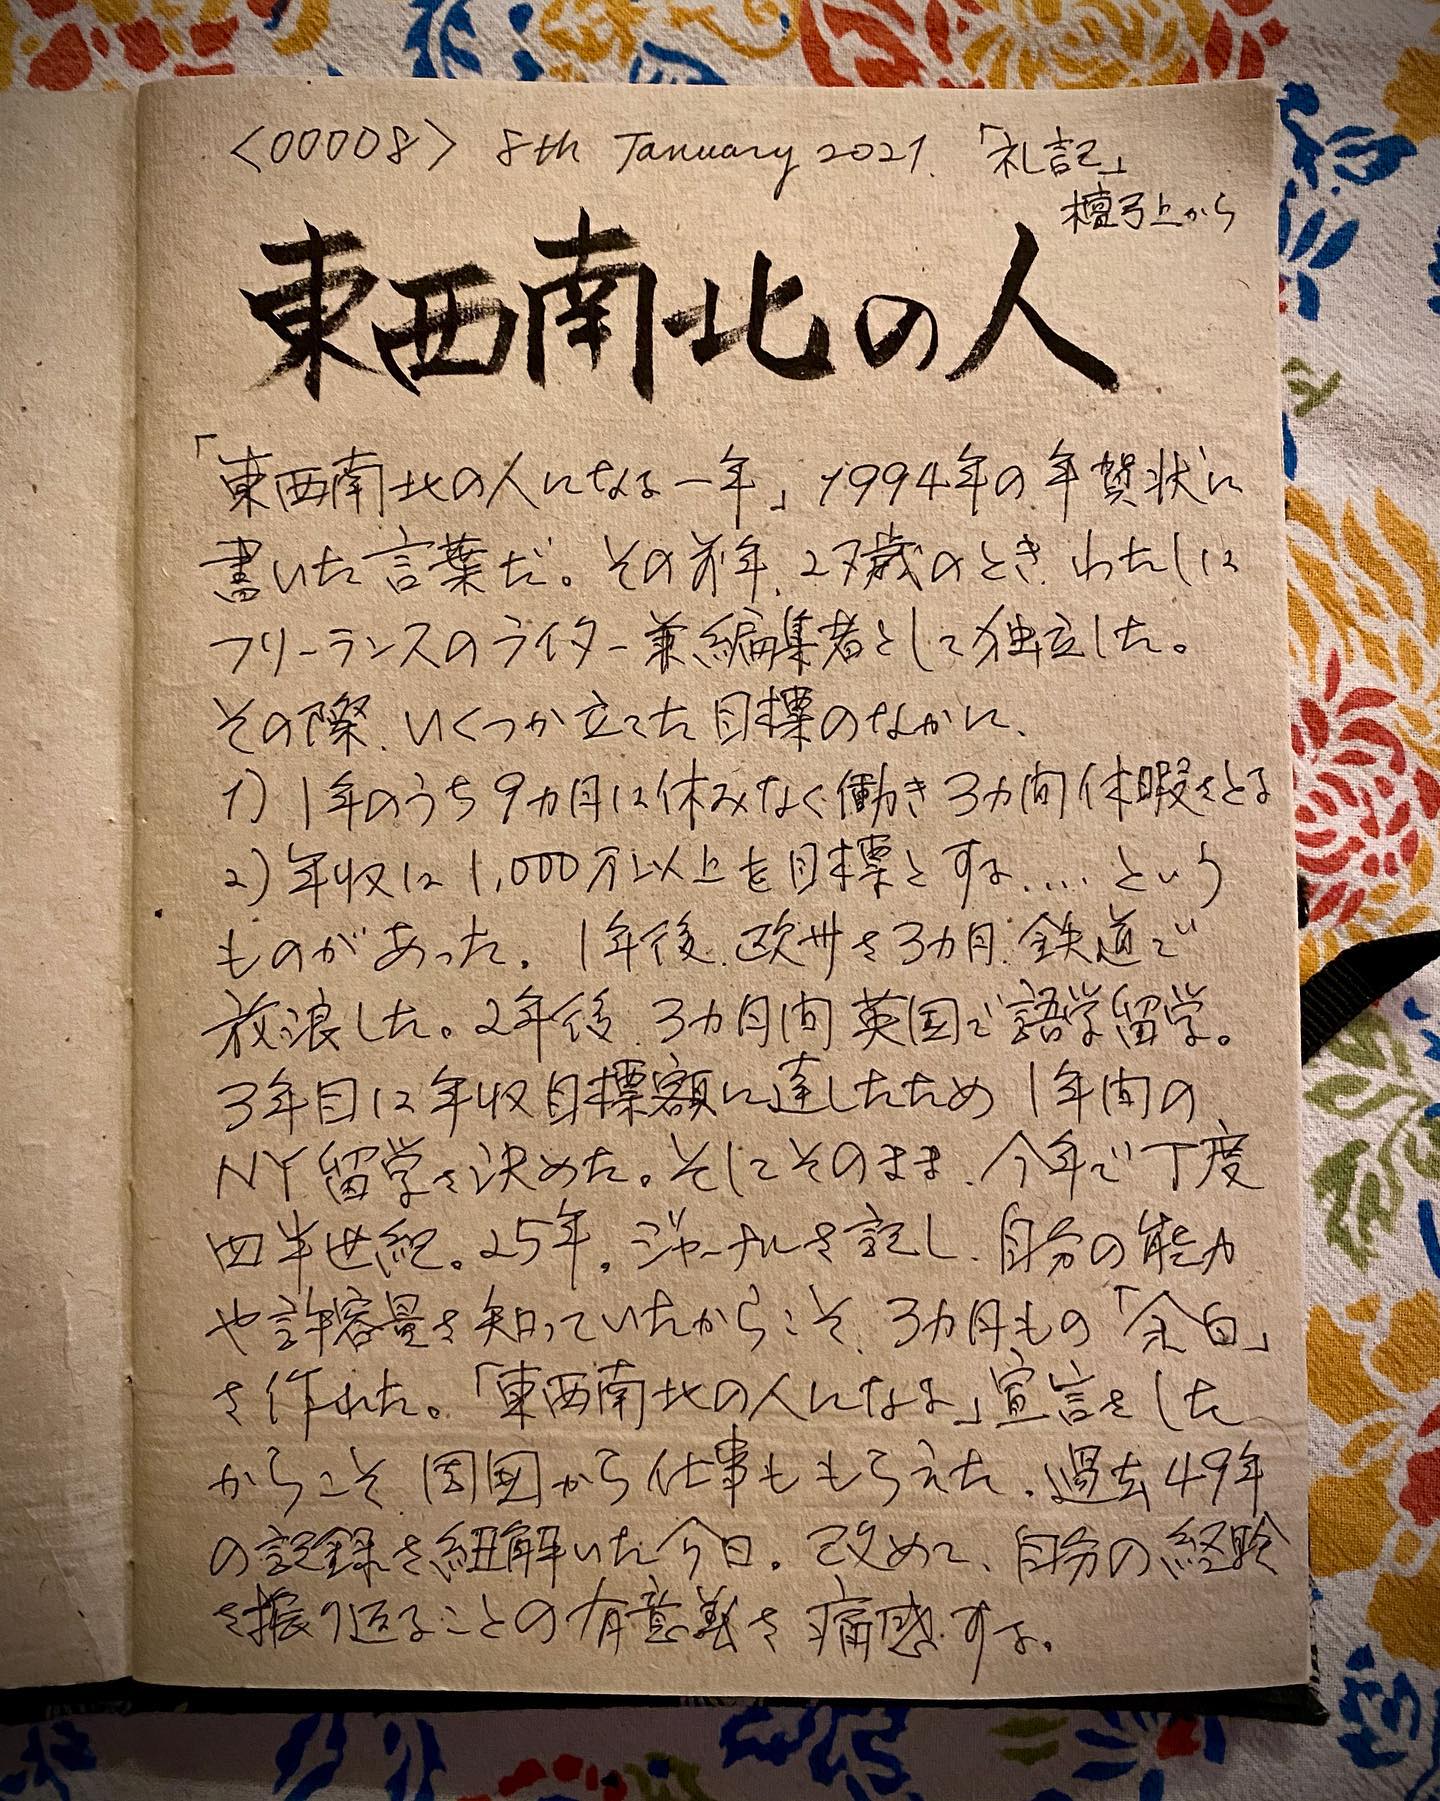 <00008> 8th January 2021. 「礼記」
檀弓上から
東西南北の人
「東西南北の人になる一年」1994年の年賀状に
書いた言葉だ。その前年、27歳のとき、わたしは
フリーランスのライター兼編集者として独立した。
その際、いくつか立てた目標のなかに、
1) 1年のうち9カ月は休みなく働き3カ月間休暇をとる
2) 年収は1,000万以上を目標とする.... という
ものがあった。1年後、欧州を3カ月、鉄道で
放浪した。2年後、3カ月間英国で語学留学。
3年目は年収目標額に達したため1年間の
NY留学を決めた。そしてそのまま、今年で丁度
四半世紀。25年。ジャーナルを記し、自分の能力
や許容量を知っていたからこそ、3カ月もの「余白」
を作れた。「東西南北の人になる」宣言をした
からこそ、周囲から仕事ももらえた。過去49年
の記録を紐解いた今日。改めて、自分の経験
を振り返ることの有意義を痛感する。